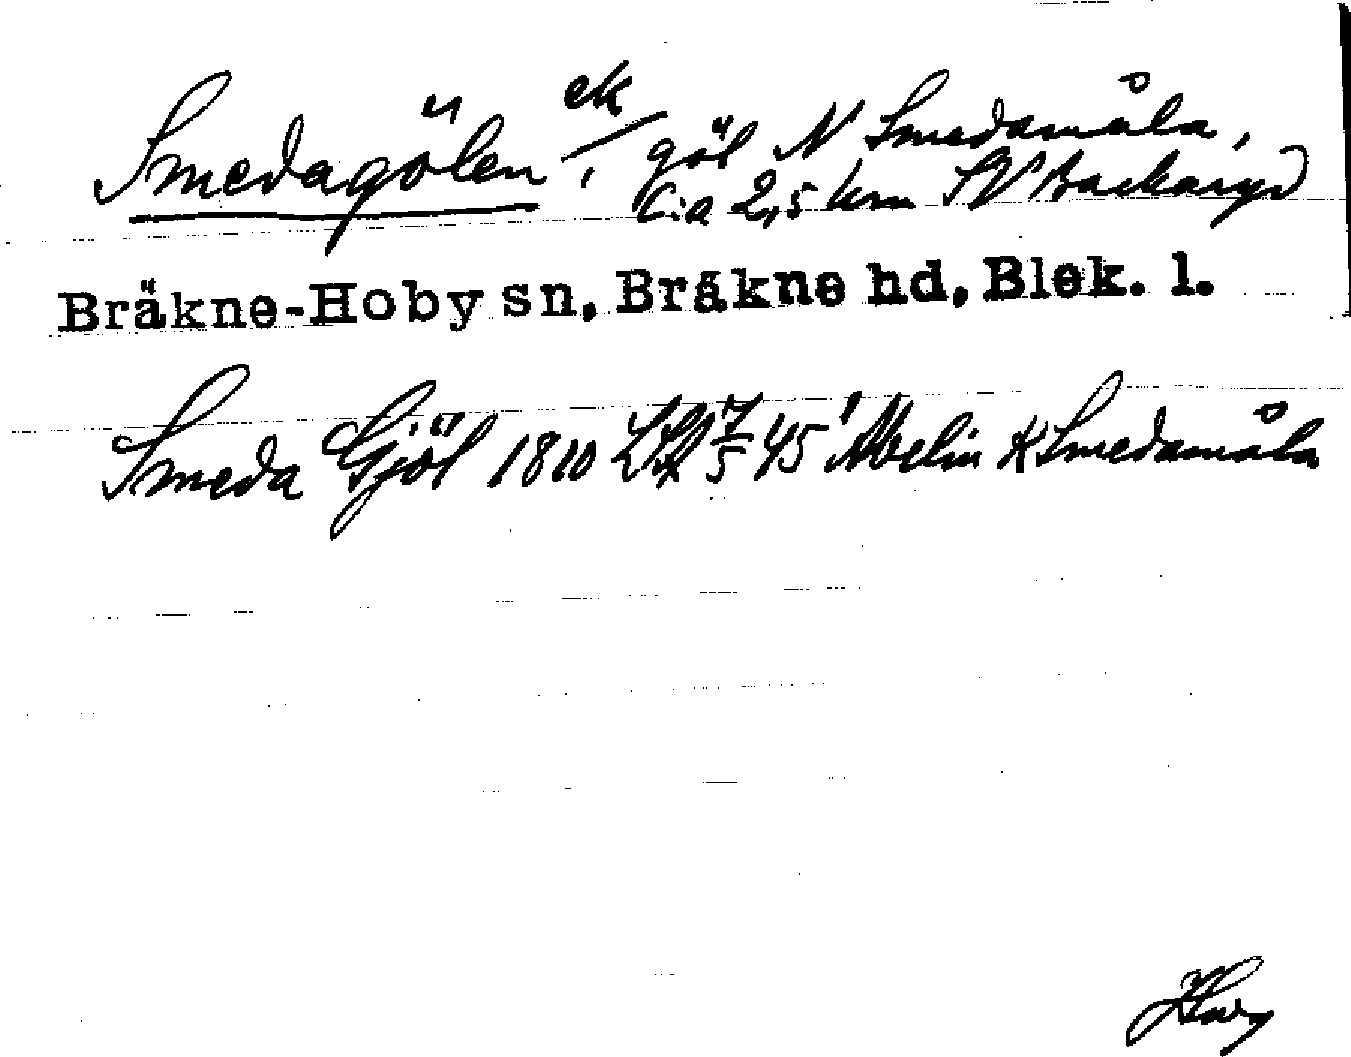 Smedagölen, ek göl N Smedamåla,
C:a 2,5 km SV Backaryd
Bräkne-Hoby sn, Bräkne hd, Blek. l.
Smeda Gjöl 1810 7/5 45 Melin K Smedamåla